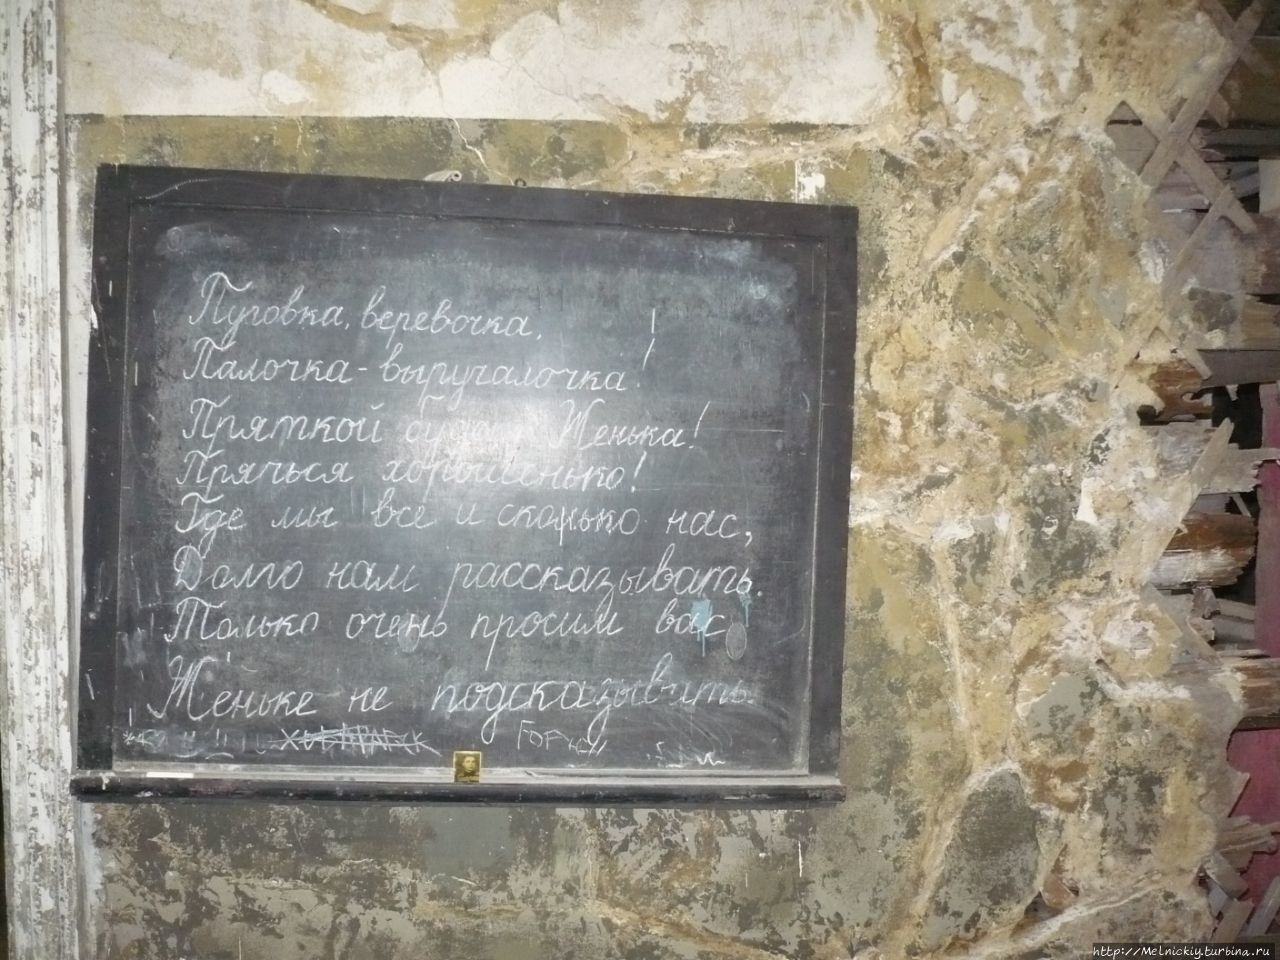 Пуговка, веревочка,
Палочка-выручалочка!
Пряткой будет Женька!
Прячься хорошенько!
Где мы все и сколько нас,
Долго нам рассказывать.
Только очень просим вас
Женьке не подсказывать.
http://Melnickiy.turbina.ru